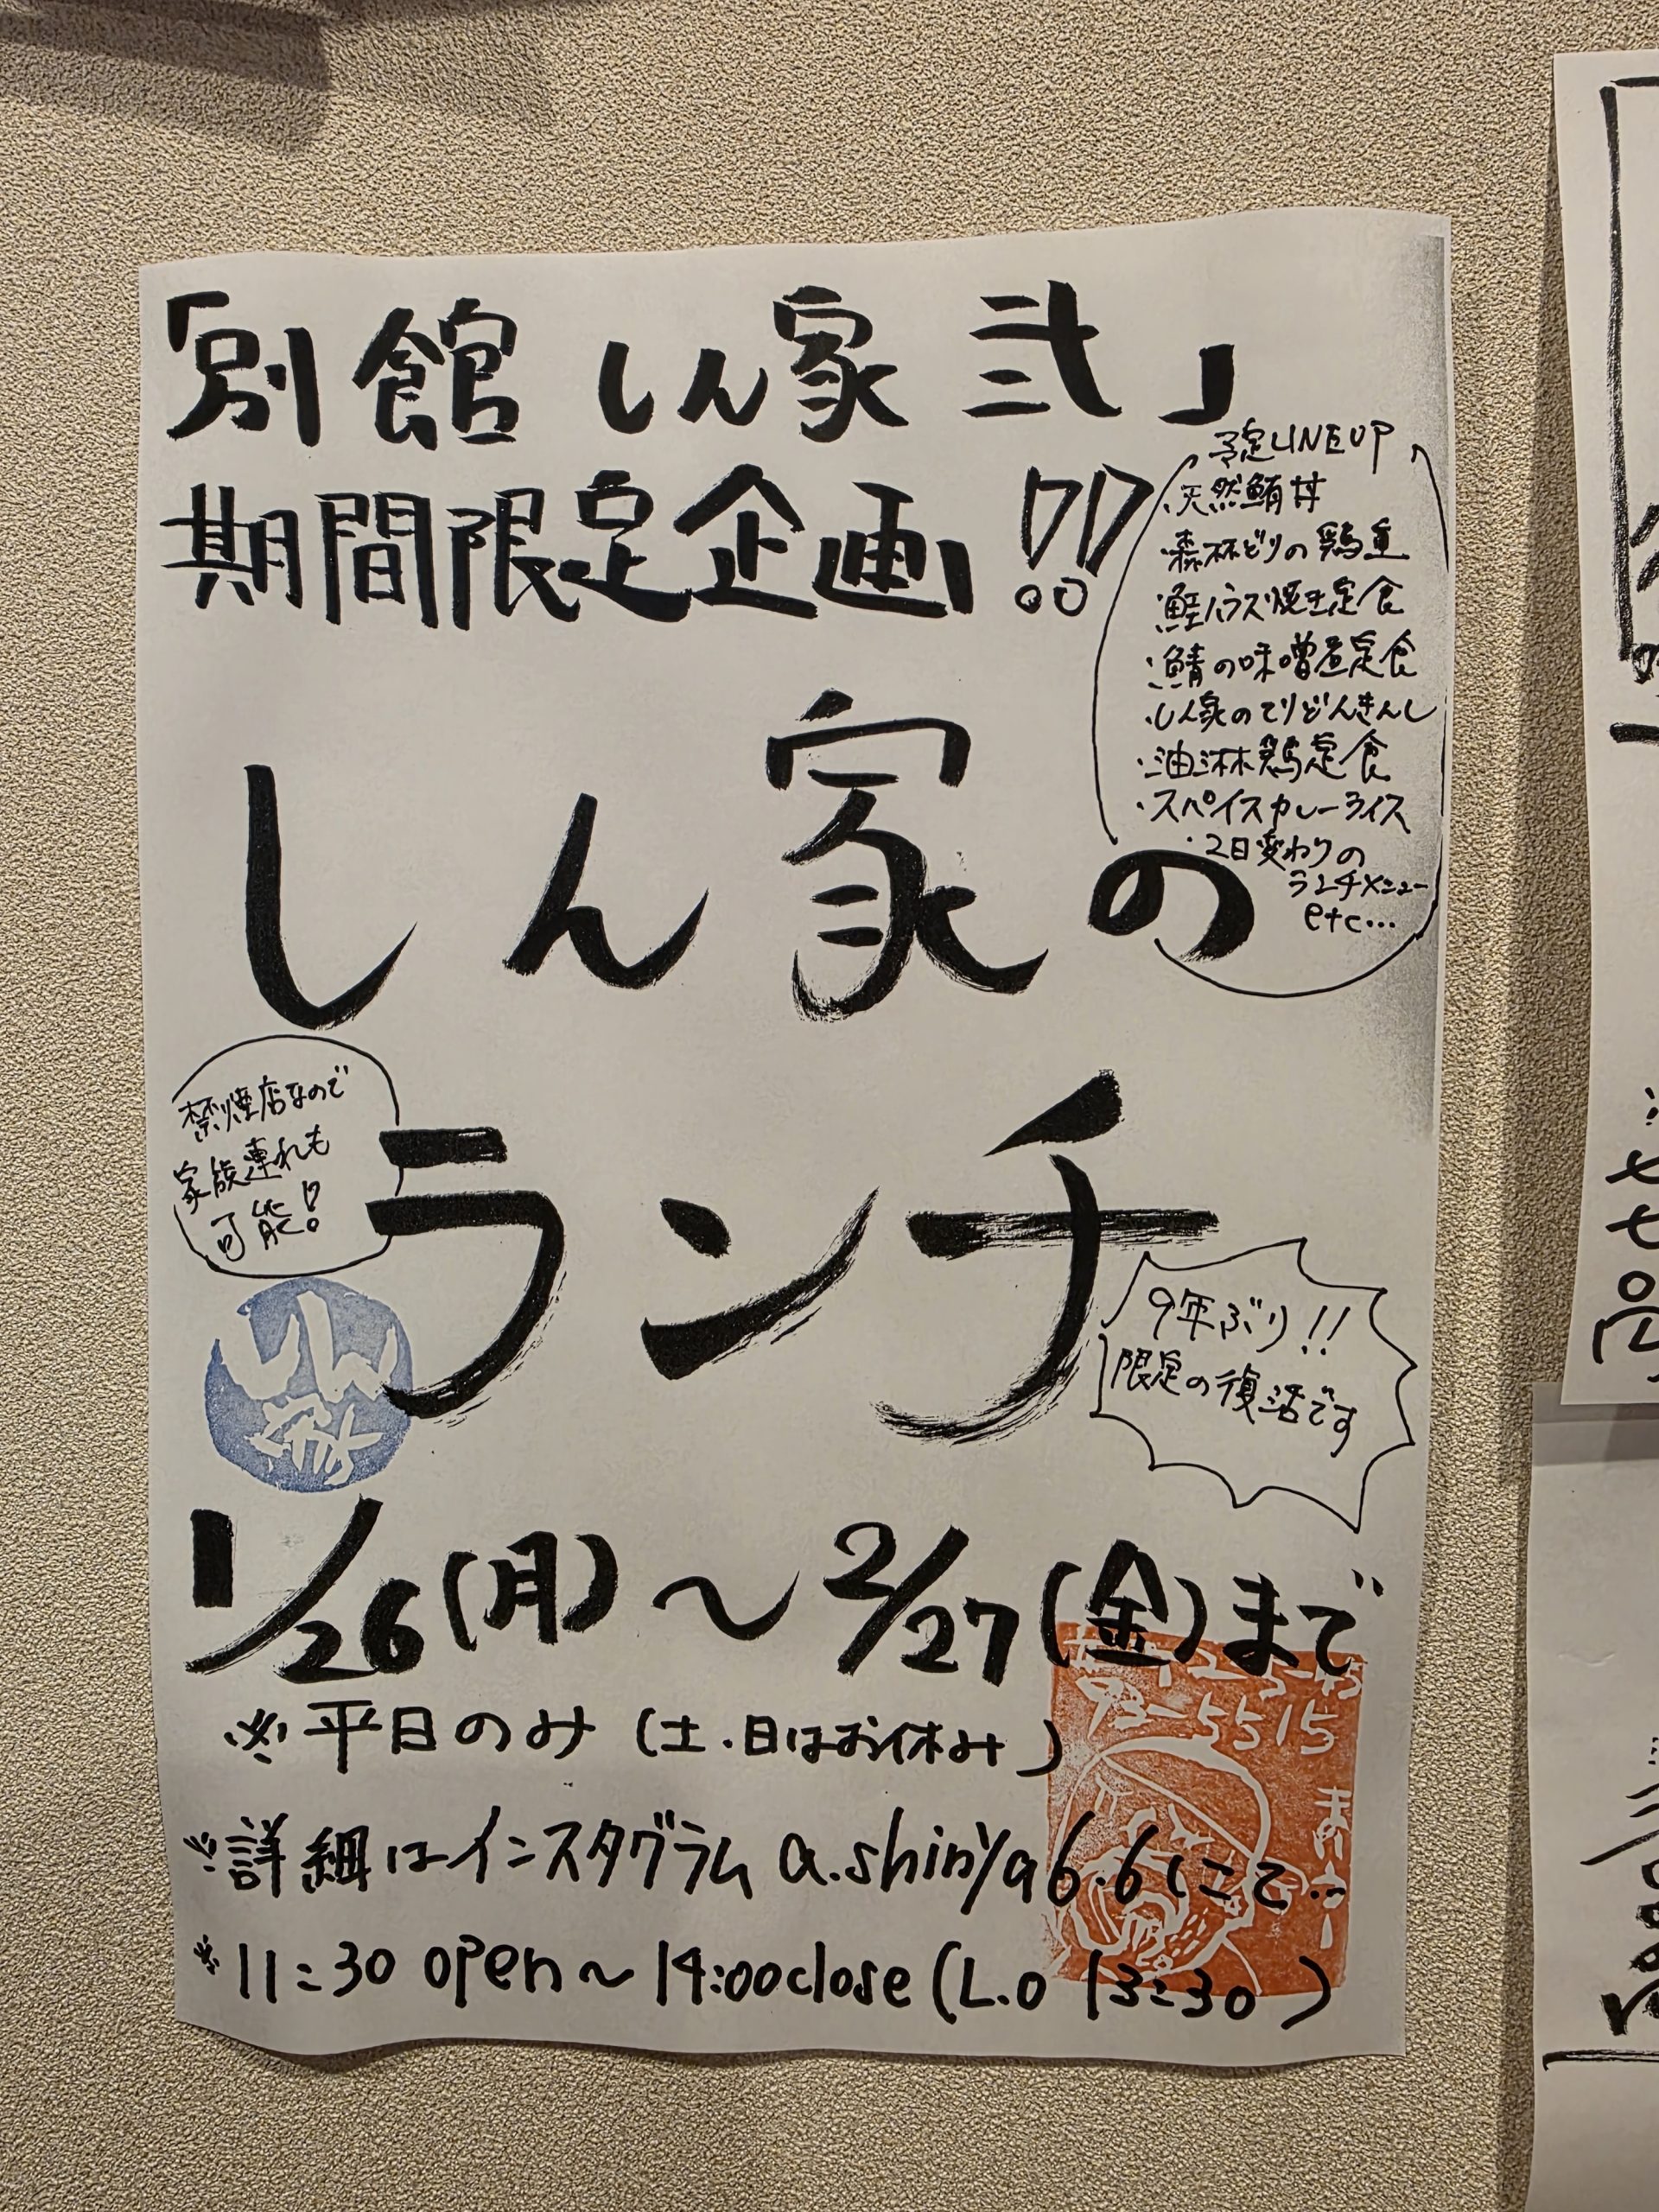 「別館 しん家 弐」
期間限定企画!!
予定LINE UP
・天然鮪丼
・森林どりの鶏重
・鮭ハラス焼き定食
・鯖の味噌煮定食
・しん家のてりどんきんし
・油淋鶏定食
・スパイスカレーライス
・2日変わりの
ランチメニュー
etc…
しん家の
ランチ
禁煙店なので
家族連れも
可能!
しん家
9年ぶり!!
限定の復活です
1/26(月)〜2/27(金)まで
※平日のみ(土.日はお休み)
※詳細はインスタグラム a.shinya6.6にて…
※11:30 open〜14:00close(L.O 13:30)
93-5515